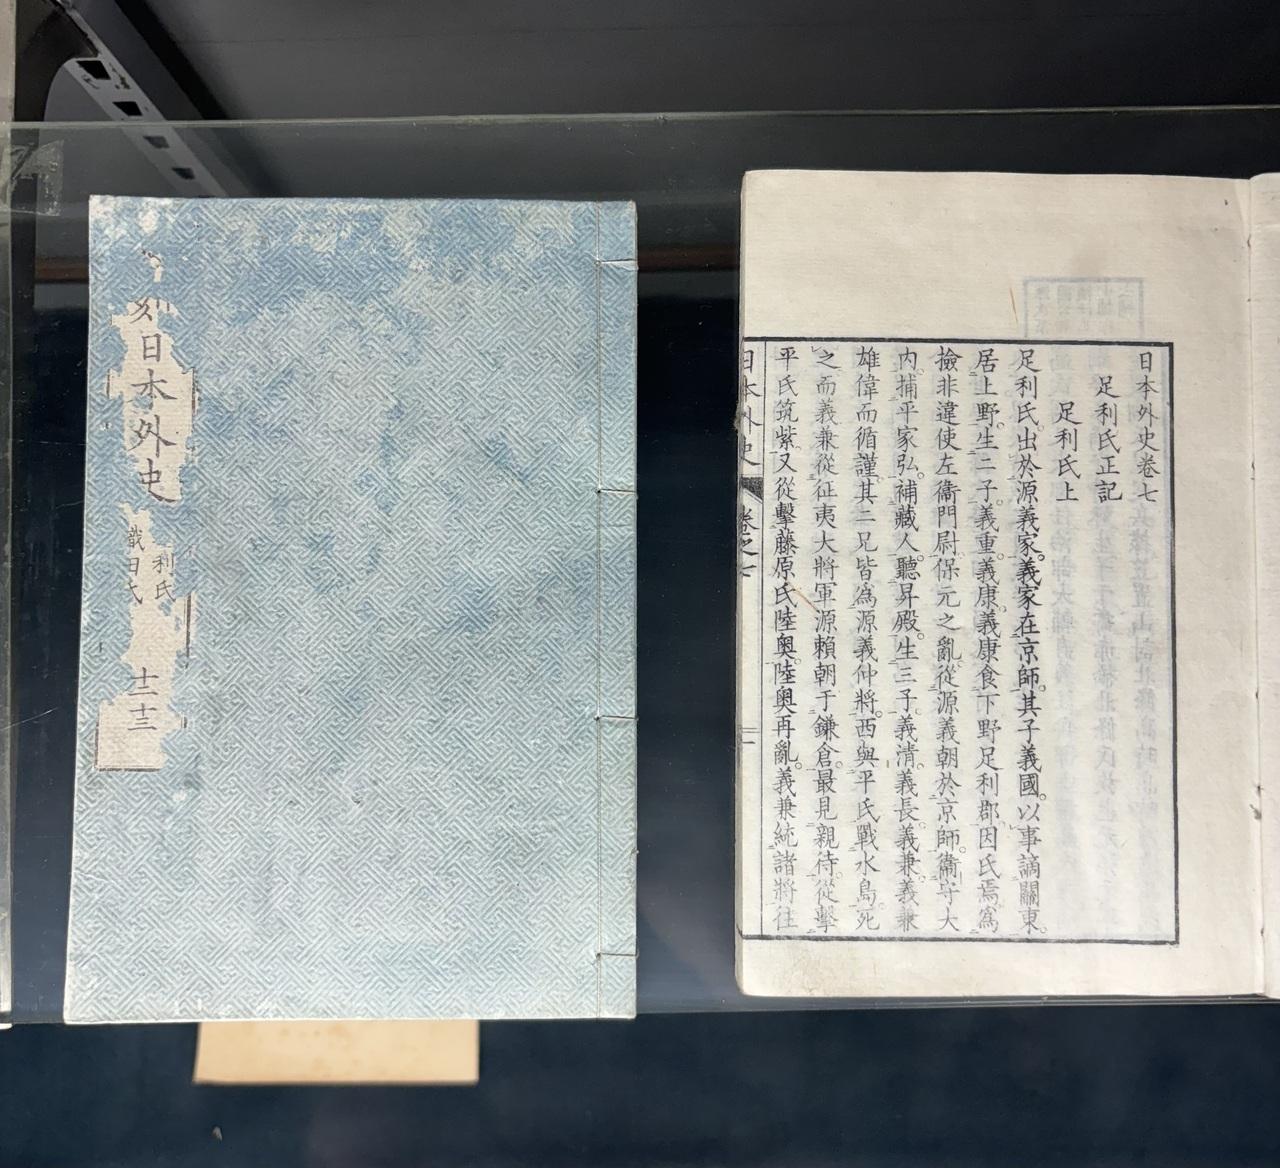 刻日本外史
利氏
織田氏
十二 十三
日本外史卷七
足利氏正記
足利氏上
足利氏。出於源義家。義家在京師。其子義國。以事謫關東。
居上野。生二子。義重。義康。義康食下野足利郡。因氏焉。爲
撿非違使左衞門尉。保元之亂。從源義朝於京師。衞守大
内。捕平家弘。補藏人。聽昇殿。生三子。義清。義長。義兼。義兼
雄偉而循謹。其二兄皆爲源義仲將。西與平氏戰水島。死
之。而義兼從征夷大將軍源賴朝于鎌倉。最見親待。從擊
平氏筑紫。又從擊藤原氏陸奥。陸奥再亂。義兼統諸將往
日本外史
卷之七